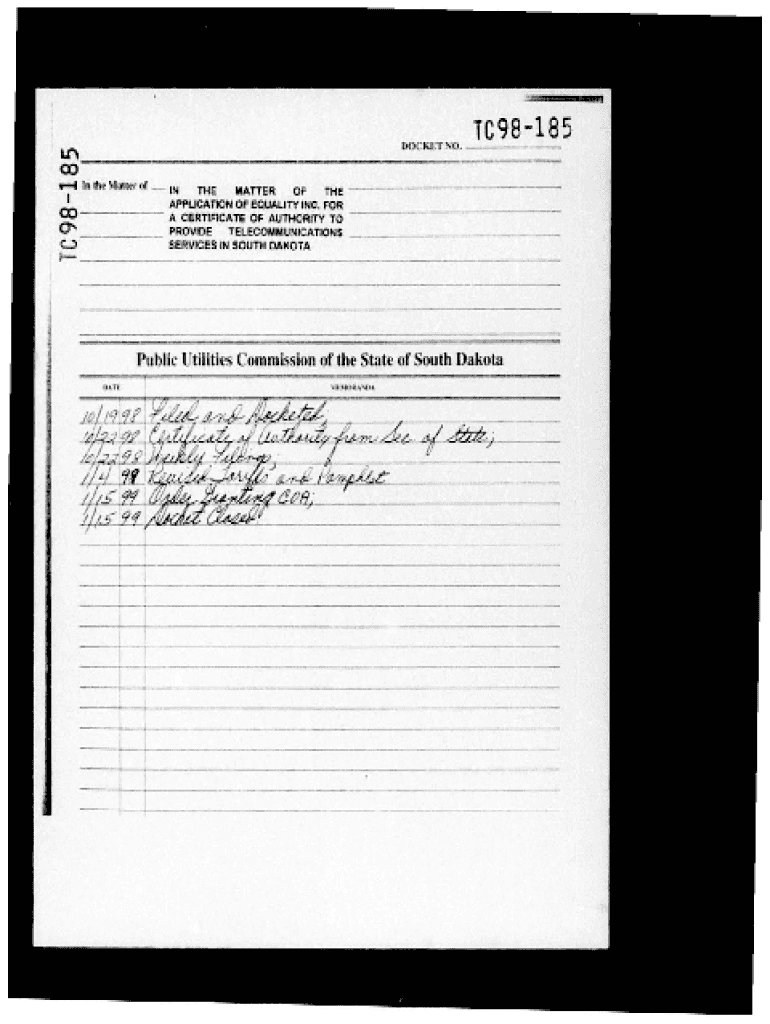 TC98-185
DOCKET NO.
TC98-185
In the Matter of
IN THE MATTER OF THE
APPLICATION OF EQUALITY INC. FOR
A CERTIFICATE OF AUTHORITY TO
PROVIDE TELECOMMUNICATIONS
SERVICES IN SOUTH DAKOTA
Public Utilities Commission of the State of South Dakota
DATE MEMORANDA
10/19 98 Filed and Docketed;
10/22 98 Certificate of Authority from Sec. of State;
10/22 98 Weekly Filing;
1/4/ 99 Revised Tariffs and Pamphlet
1/15 99 Order Granting COA;
1/15 99 Docket Closed